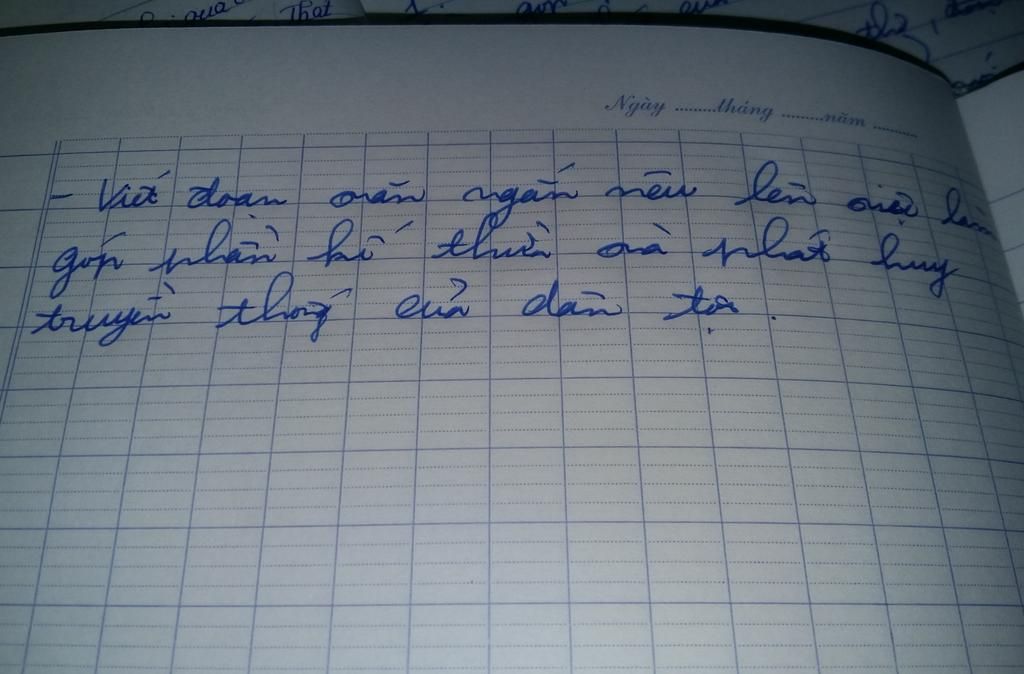 That
Ngày ........tháng ........năm ........
- Viết đoạn văn ngắn nêu lên việc làm
góp phần kế thừa và phát huy
truyền thống của dân tộc.